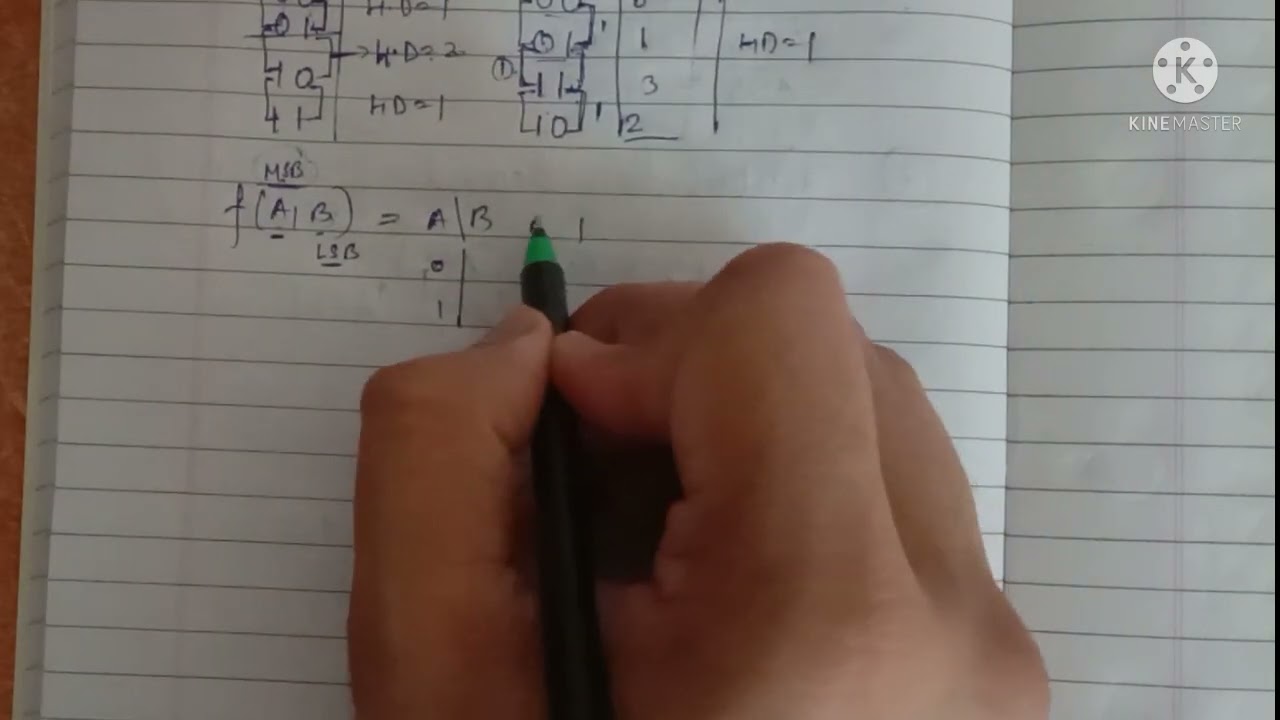 H.D=1
0 1 H.D=2 0 1 1 HD=1
1 0 1 1 1 3
1 1 HD=1 1 0 1 2
MSB
f(A, B) = A\B 0 1
LSB
0
1
K
KINEMASTER